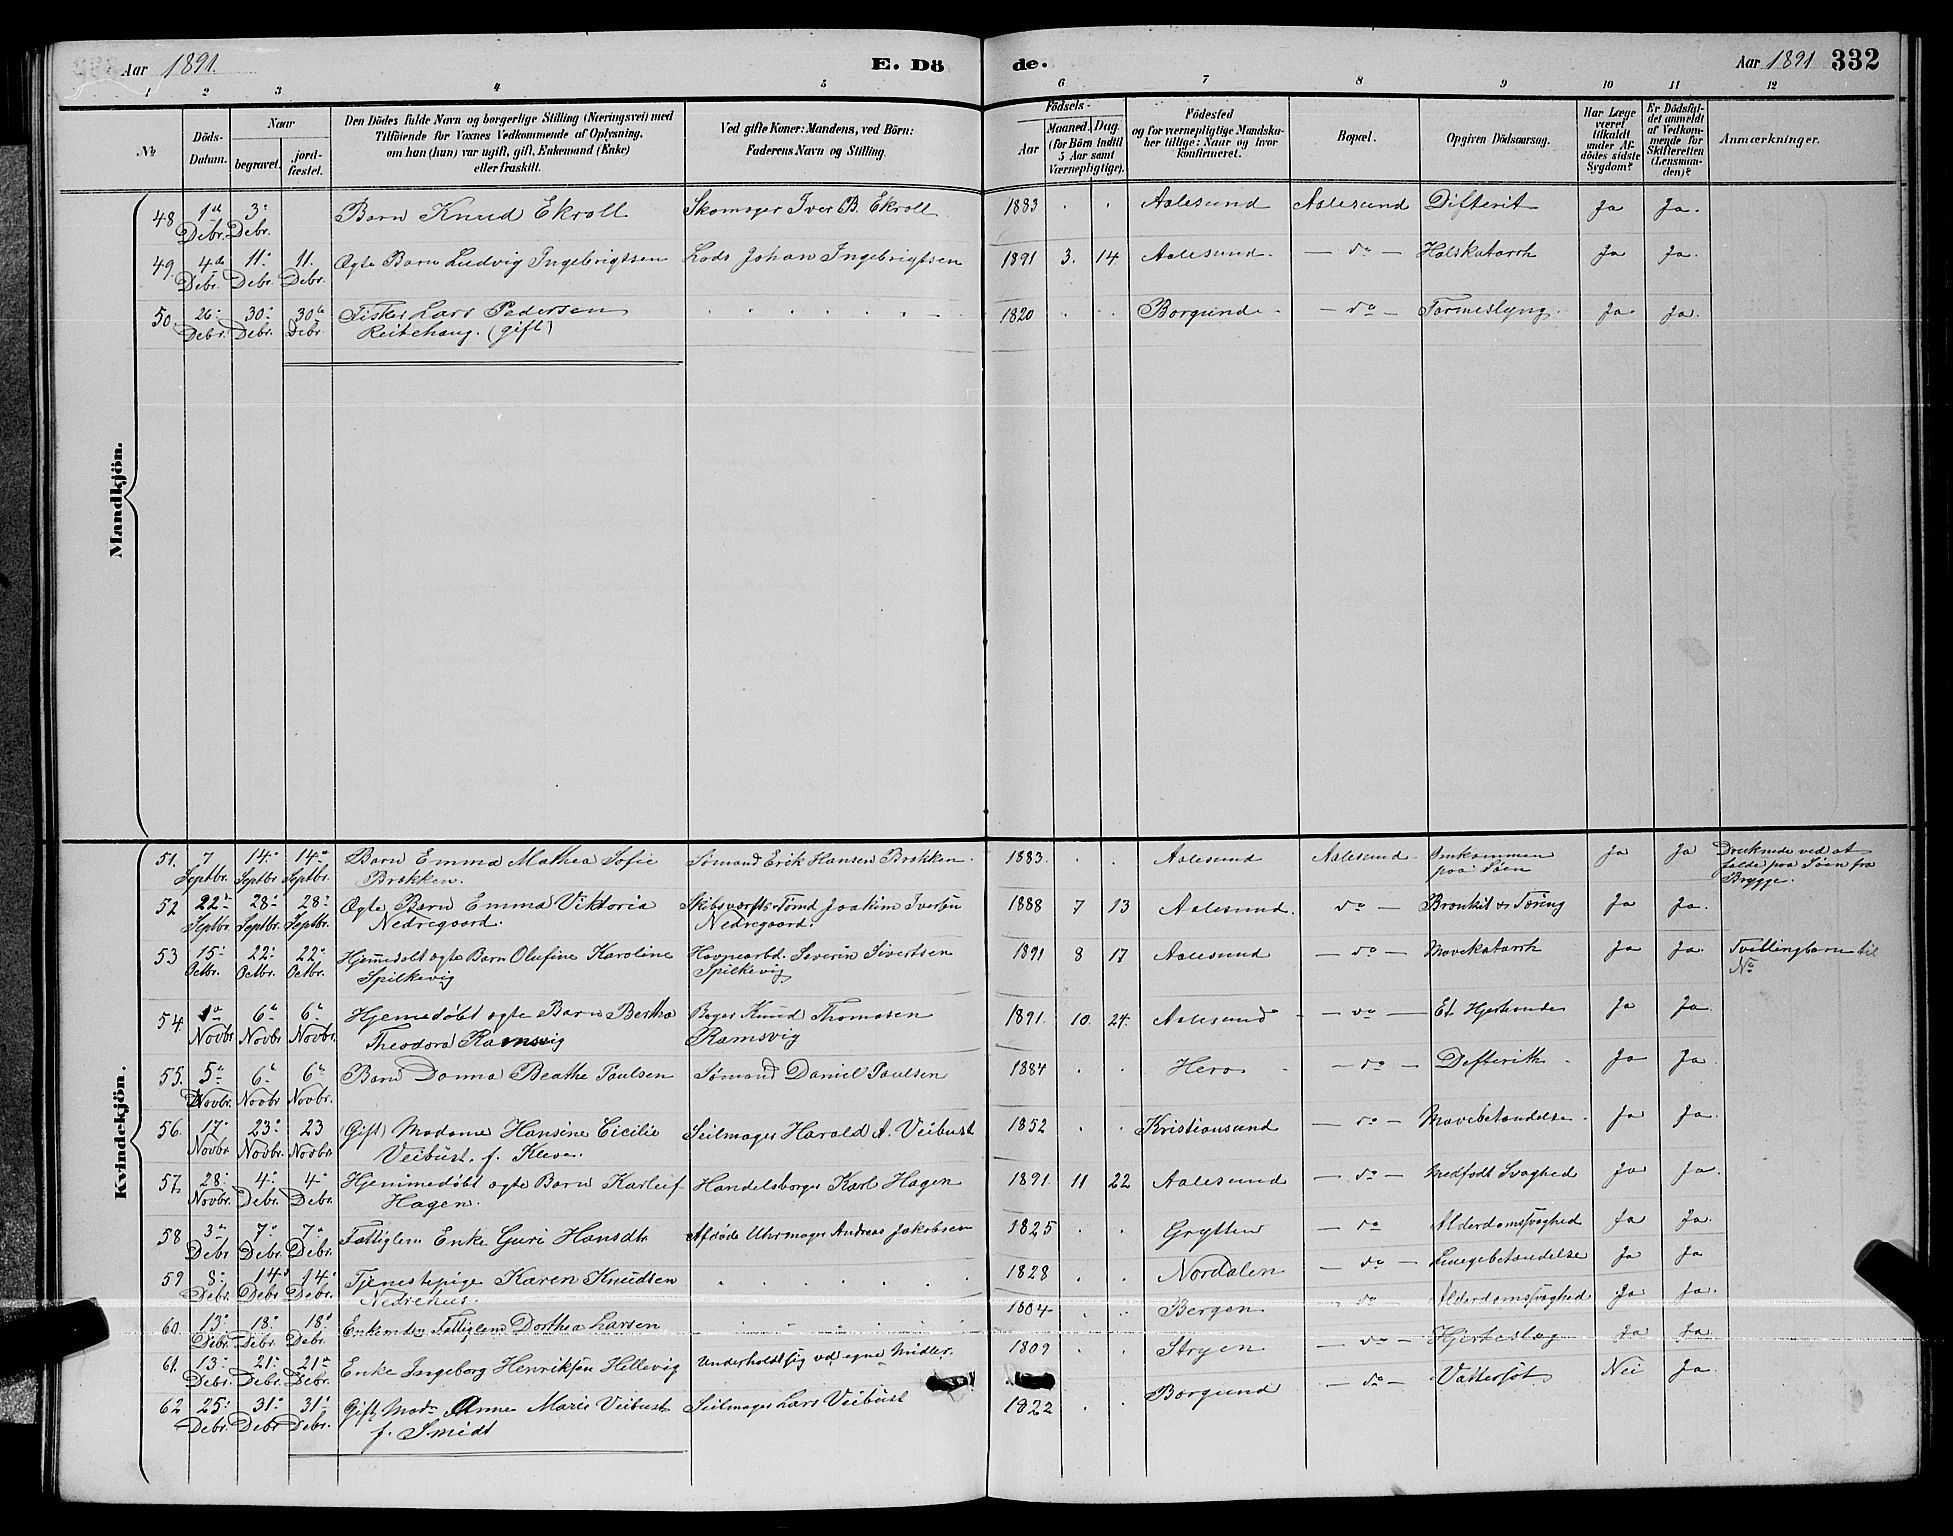 Aar 1891. E. Dö de. Aar 1891 332
1 2 3 4 5 6 7 8 9 10 11 12
No. Döds-Datum. Naar begravet. jord-fæstet. Den Dödes fulde Navn og borgerlige Stilling (Næringsvei) med Tilföiende for Voxnes Vedkommende af Oplysning, om han (hun) var ugift, gift, Enkemand (Enke) eller fraskilt. Ved gifte Koner: Mandens, ved Börn: Faderens Navn og Stilling. Födsels- Aar Maaned. Dag. (for Börn indtil 5 Aar samt Værnepligtige). Födested og for værnepligtige Mandska-ber tillige: Naar og hvor konfirmeret. Bopæl. Opgiven Dödsaarsag. Har Læge været tilkaldt under Af-dödes sidste Sygdom? Er Dödsfal-det anmeldt af Vedkom-mende for Skifteretten (Lensman-den)? Anmærkninger.
Mandkjön.
48 1ste Debr. 3. Debr. Barn Knud Ekroll Skomager Iver B. Ekroll 1883 . . Aalesund Aalesund Difterit Ja Ja.
49. 4de Debr. 11. Debr. 11. Debr. Ægte Barn Ludvig Ingebrigtsen Lods Johan Ingebrigtsen 1891 3. 14. Aalesund. — do — Halskatarrh Ja Ja.
50. 26. Debr. 30. Debr. 30te Debr. Fisker Lars Pedersen
Reitehaug. (gift) 1820 . . Borgund. — do — Tarmeslyng. Ja Ja.
Kvindekjön.
51. 7 Septbr. 14. Septbr. 14. Septbr. Barn Emma Mathea Sofie
Brekken. Sømand Erik Hansen Brekken. 1883. . . Aalesund Aalesund. Omkommen
paa Søen Ja Ja Druknede ved at
falde paa Søen fra
Brygge.
52 22. Septbr. 28. Septbr. 28. Septbr. Ægte Barn Emma Viktoria
Nedregaard. Skibsværfts-Tømd Joakim Iversen
Nedregaard. 1888 7 13 Aalesund. do — Bronkit & Tæring Ja Ja.
53 15. Octbr. 22. Octbr. 22. Octbr. Hjemedøbt ægte Barn Olufine Karoline
Spilkevig Havnearbd. Severin Sivertsen
Spilkevig 1891 8 17 Aalesund — do — Mavekatarrh Ja Ja. Tvillingbarn til
No
54. 1. Novbr 6. Novbr. 6. Novbr. Hjemedøbt ægte Barn Bertha
Theodora Ramsvig Bager Knud Thomasen
Ramsvig 1891. 10. 24. Aalesund — do — Et Hjertonde Ja Ja.
55. 5. Novbr. 6. Novbr 6. Novbr. Barn Donna Beathe Paulsen Sømand Daniel Paulsen 1884 . . Herø — do — Defterith Ja Ja.
56. 17. Novbr 23. Novbr. 23 Novbr. (Gift) Madame Hansine Cicilie
Veibust. f. Kleve. Seilmager Harald A. Veibust 1852 . . Kristiansund — do — Mavebetændelse. Ja Ja.
57. 28. Novbr. 4. Debr. 4. Debr. Hjemmedøbt ægte Barn Karleif
Hagen. Handelsborger Karl Hagen 1891. 11 22 Aalesund — do — Medfødt Svaghed Ja Ja.
58 3. Debr 7. Debr. 7. Debr. Fattiglem Enke Guri Hansdtr Afdøde Uhrmager Andreas Jakobsen 1825 . . Grytten — do Alderdomssvaghed Ja Ja.
59 8. Debr. 14. Debr 14. Debr. Tjenestepige Karen Knudsen
Nedrehus. 1828 . . Nordalen — do — Lungebetændelse Ja Ja
60. 13. Debr. 18. Debr. 18. Debr. Fattiglem Dorthea Larsen 1804 . . Bergen — do — Alderdomssvaghed Ja Ja.
61. 13. Debr. 21. Debr. 21. Debr. Enke Ingeborg Henriksen Hellevig Underholdt sig ved egne Midler. 1809 . . Stryen — do — Hjerteslag Ja Ja
62 25. Debr. 31. Debr 31. Debr. Gift Mad. Anne Marie Veibust
f. Smidt Seilmager Lars Veibust 1822 . . Borgund — do — Vattersot Nei Ja